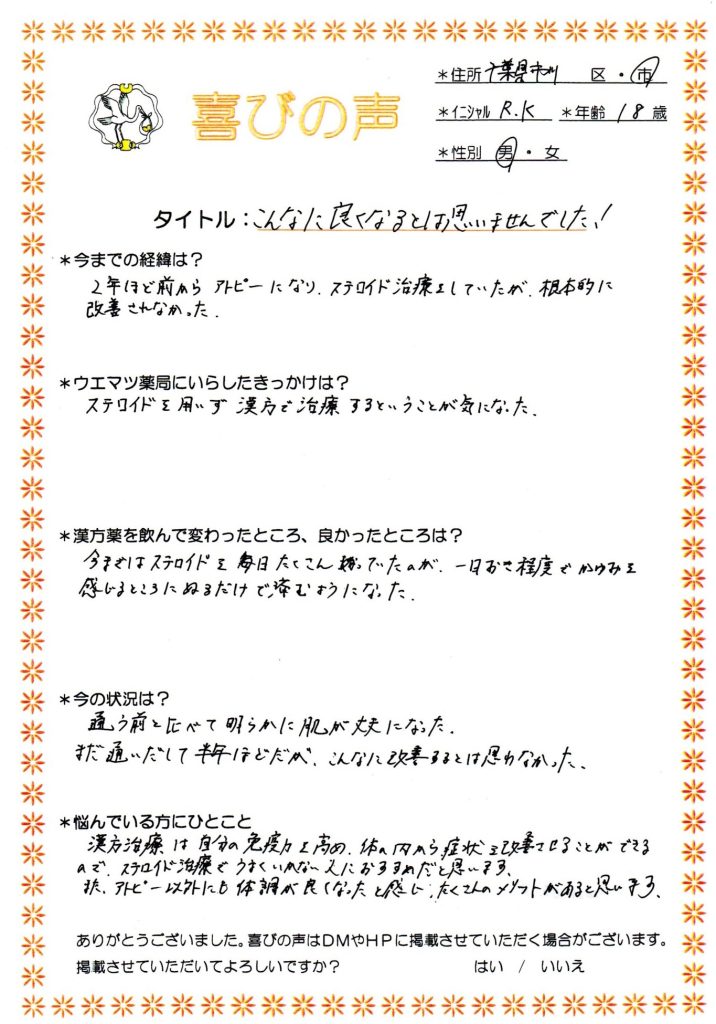 喜びの声
*住所 千葉県市川 区・市
*イニシャル R.K *年齢 18 歳
*性別 男・女
タイトル:こんなに良くなるとは思いませんでした!
*今までの経緯は?
2年ほど前から アトピーになり、ステロイド治療をしていたが、根本的に
改善されなかった.
*ウエマツ薬局にいらしたきっかけは?
ステロイドを用いず 漢方で治療するということが気になった.
*漢方薬を飲んで変わったところ、良かったところは?
今まではステロイドを毎日たくさん塗っていたのが、一日おき程度でかゆみを
感じるところにぬるだけで済むようになった.
*今の状況は?
通う前と比べて明らかに肌が丈夫になった.
まだ通いだして半年ほどだが、こんなに改善するとは思わなかった.
*悩んでいる方にひとこと
漢方治療は自分の免疫力を高め、体の内から症状を改善させることができる
ので、ステロイド治療でうまくいかない人におすすめだと思います.
また、アトピー以外にも体調が良くなったと感じ、たくさんのメリットがあると思います.
ありがとうございました。喜びの声はDMやHPに掲載させていただく場合がございます。
掲載させていただいてよろしいですか? はい / いいえ